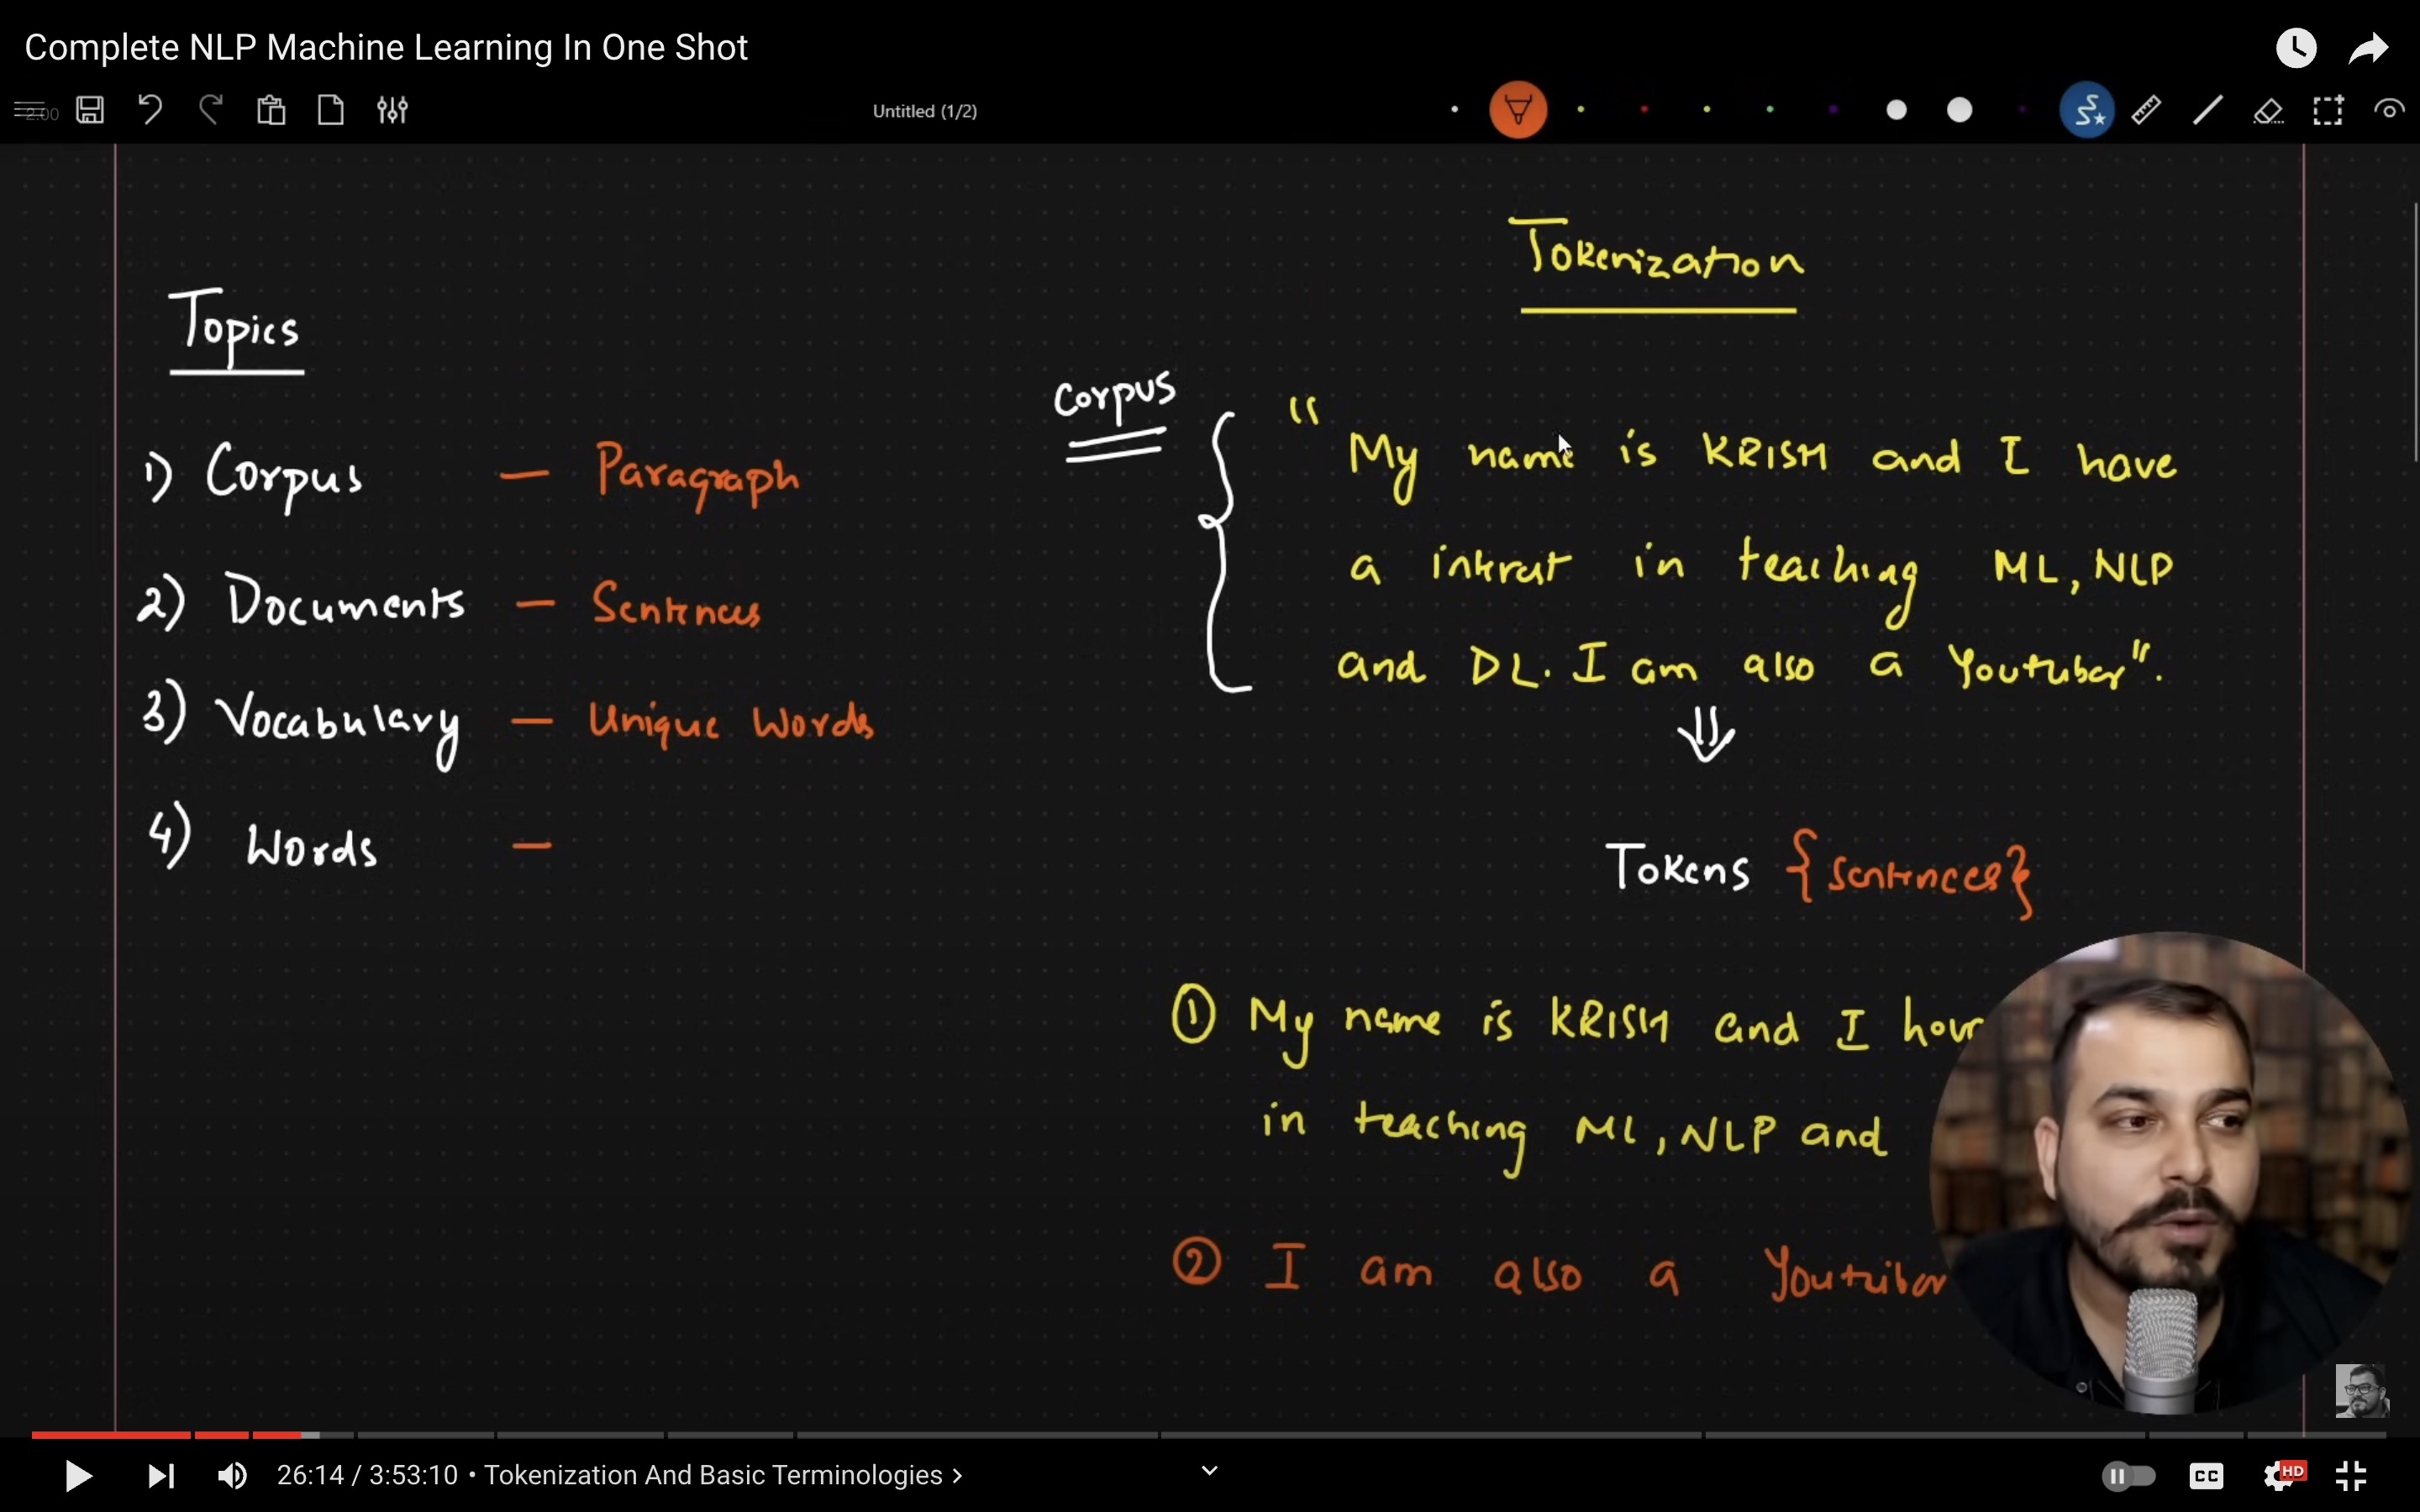 Complete NLP Machine Learning In One Shot
2.00
Untitled (1/2)
Tokenization
Topics
Corpus
1) Corpus — Paragraph
2) Documents — Sentences
3) Vocabulary — Unique Words
4) Words —
"My name is KRISH and I have
a intrest in teaching ML, NLP
and DL. I am also a Youtuber".
Tokens {sentences}
① My name is KRISH and I have
in teaching ML, NLP and
② I am also a Youtuber
26:14 / 3:53:10 • Tokenization And Basic Terminologies >
CC
HD